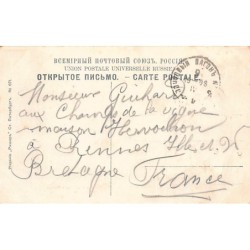 ВСЕМІРНЫЙ ПОЧТОВЫЙ СОЮЗЪ. РОССІЯ
UNION POSTALE UNIVERSELLE RUSSIE
ОТКРЫТОЕ ПИСЬМО. — CARTE POSTALE
Monsieur Guihard
aux Champs de la vigne
maison
à Rennes Ille-et-V
Bretagne France